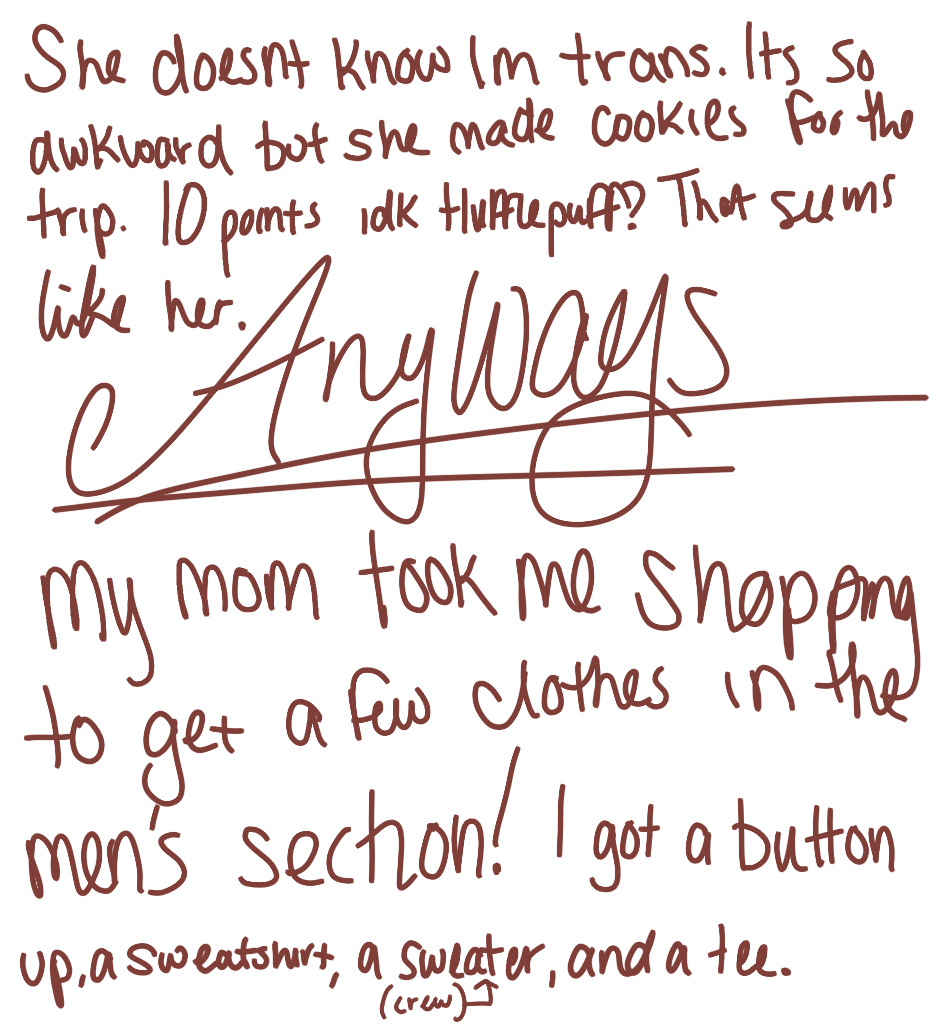 She doesnt know Im trans. Its so
awkward but she made cookies for the
trip. 10 points idk Hufflepuff? That seems
like her.
Anyways
my mom took me shopping
to get a few clothes in the
men's section! I got a button
up, a sweatshirt, a sweater, and a tee.
(crew)